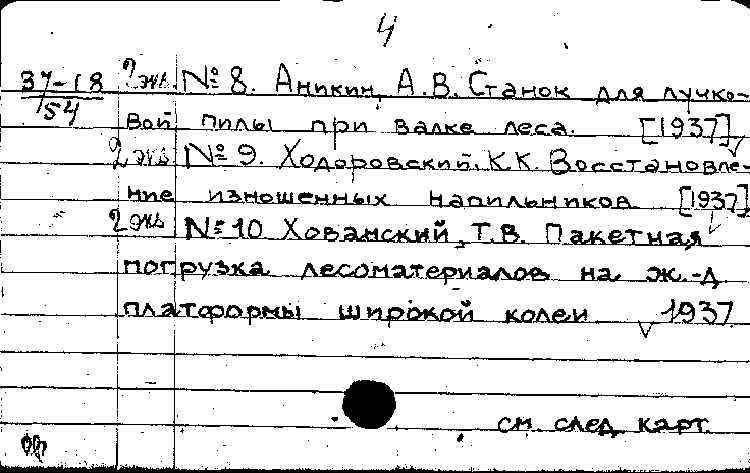 4
37-18 2 экз. № 8. Аникин, А.В. Станок для лучко-
154 вой пилы при валке леса. [1937]
2 экз № 9. Ходоровский, К.К. Восстановле-
ние изношенных напильников [1937]
2 экз № 10 Хованский, Т.В. Пакетная
погрузка лесоматериалов на ж.-д
платформы широкой колеи 1937
см. след. карт.